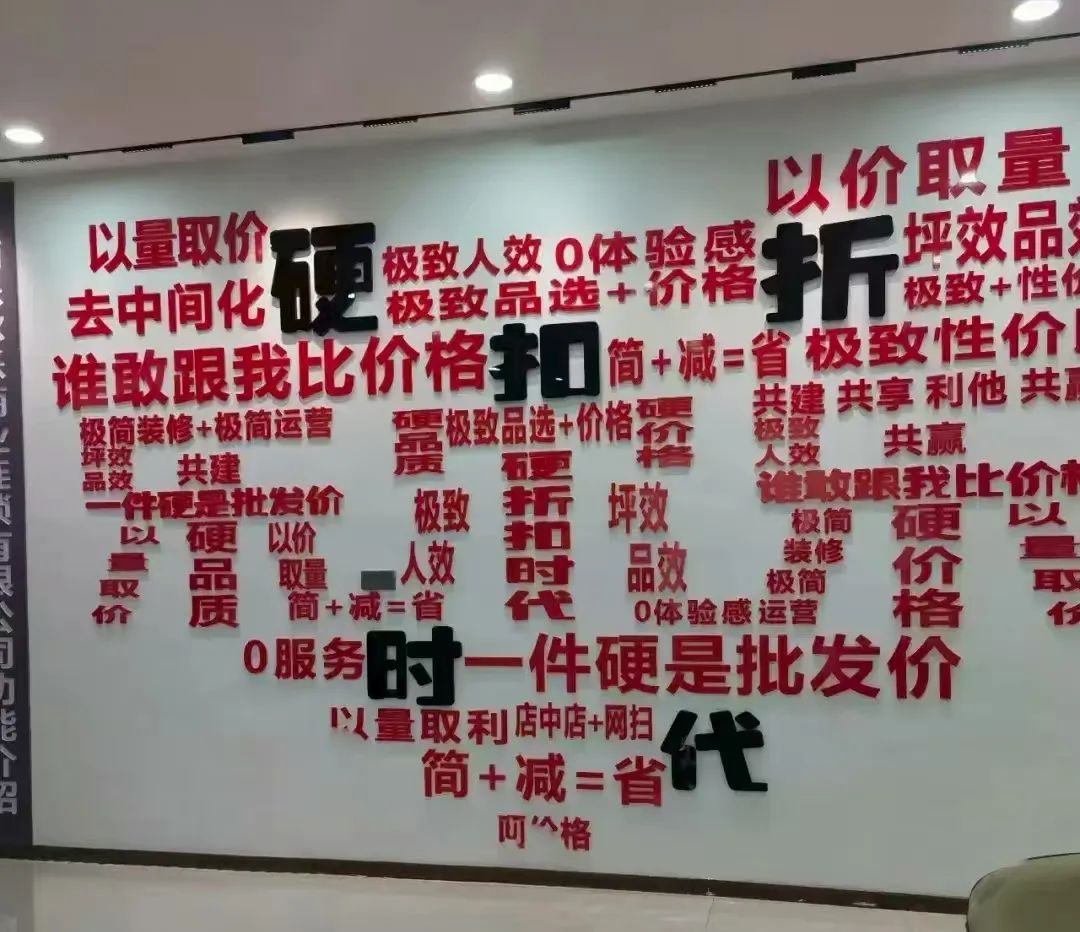 以价取量
以量取价
硬
极致人效
0体验感
折
坪效品效
去中间化
极致品选+价格
极致+性价
谁敢跟我比价格
扣
简+减=省
极致性价
共建 共享 利他 共赢
极简装修+极简运营
硬品质
极致品选+价格
硬价格
极致人效
共赢
坪效品效
共建
硬折扣时代
谁敢跟我比价格
一件硬是批发价
极致人效
坪效品效
极简装修极简
硬价格
以量取价
以量取价
硬品质
以价取量
简+减=省
0体验感运营
0服务
时
一件硬是批发价
以量取利
店中店+网扫
代
简+减=省
价格
业连锁有限公司功能介绍